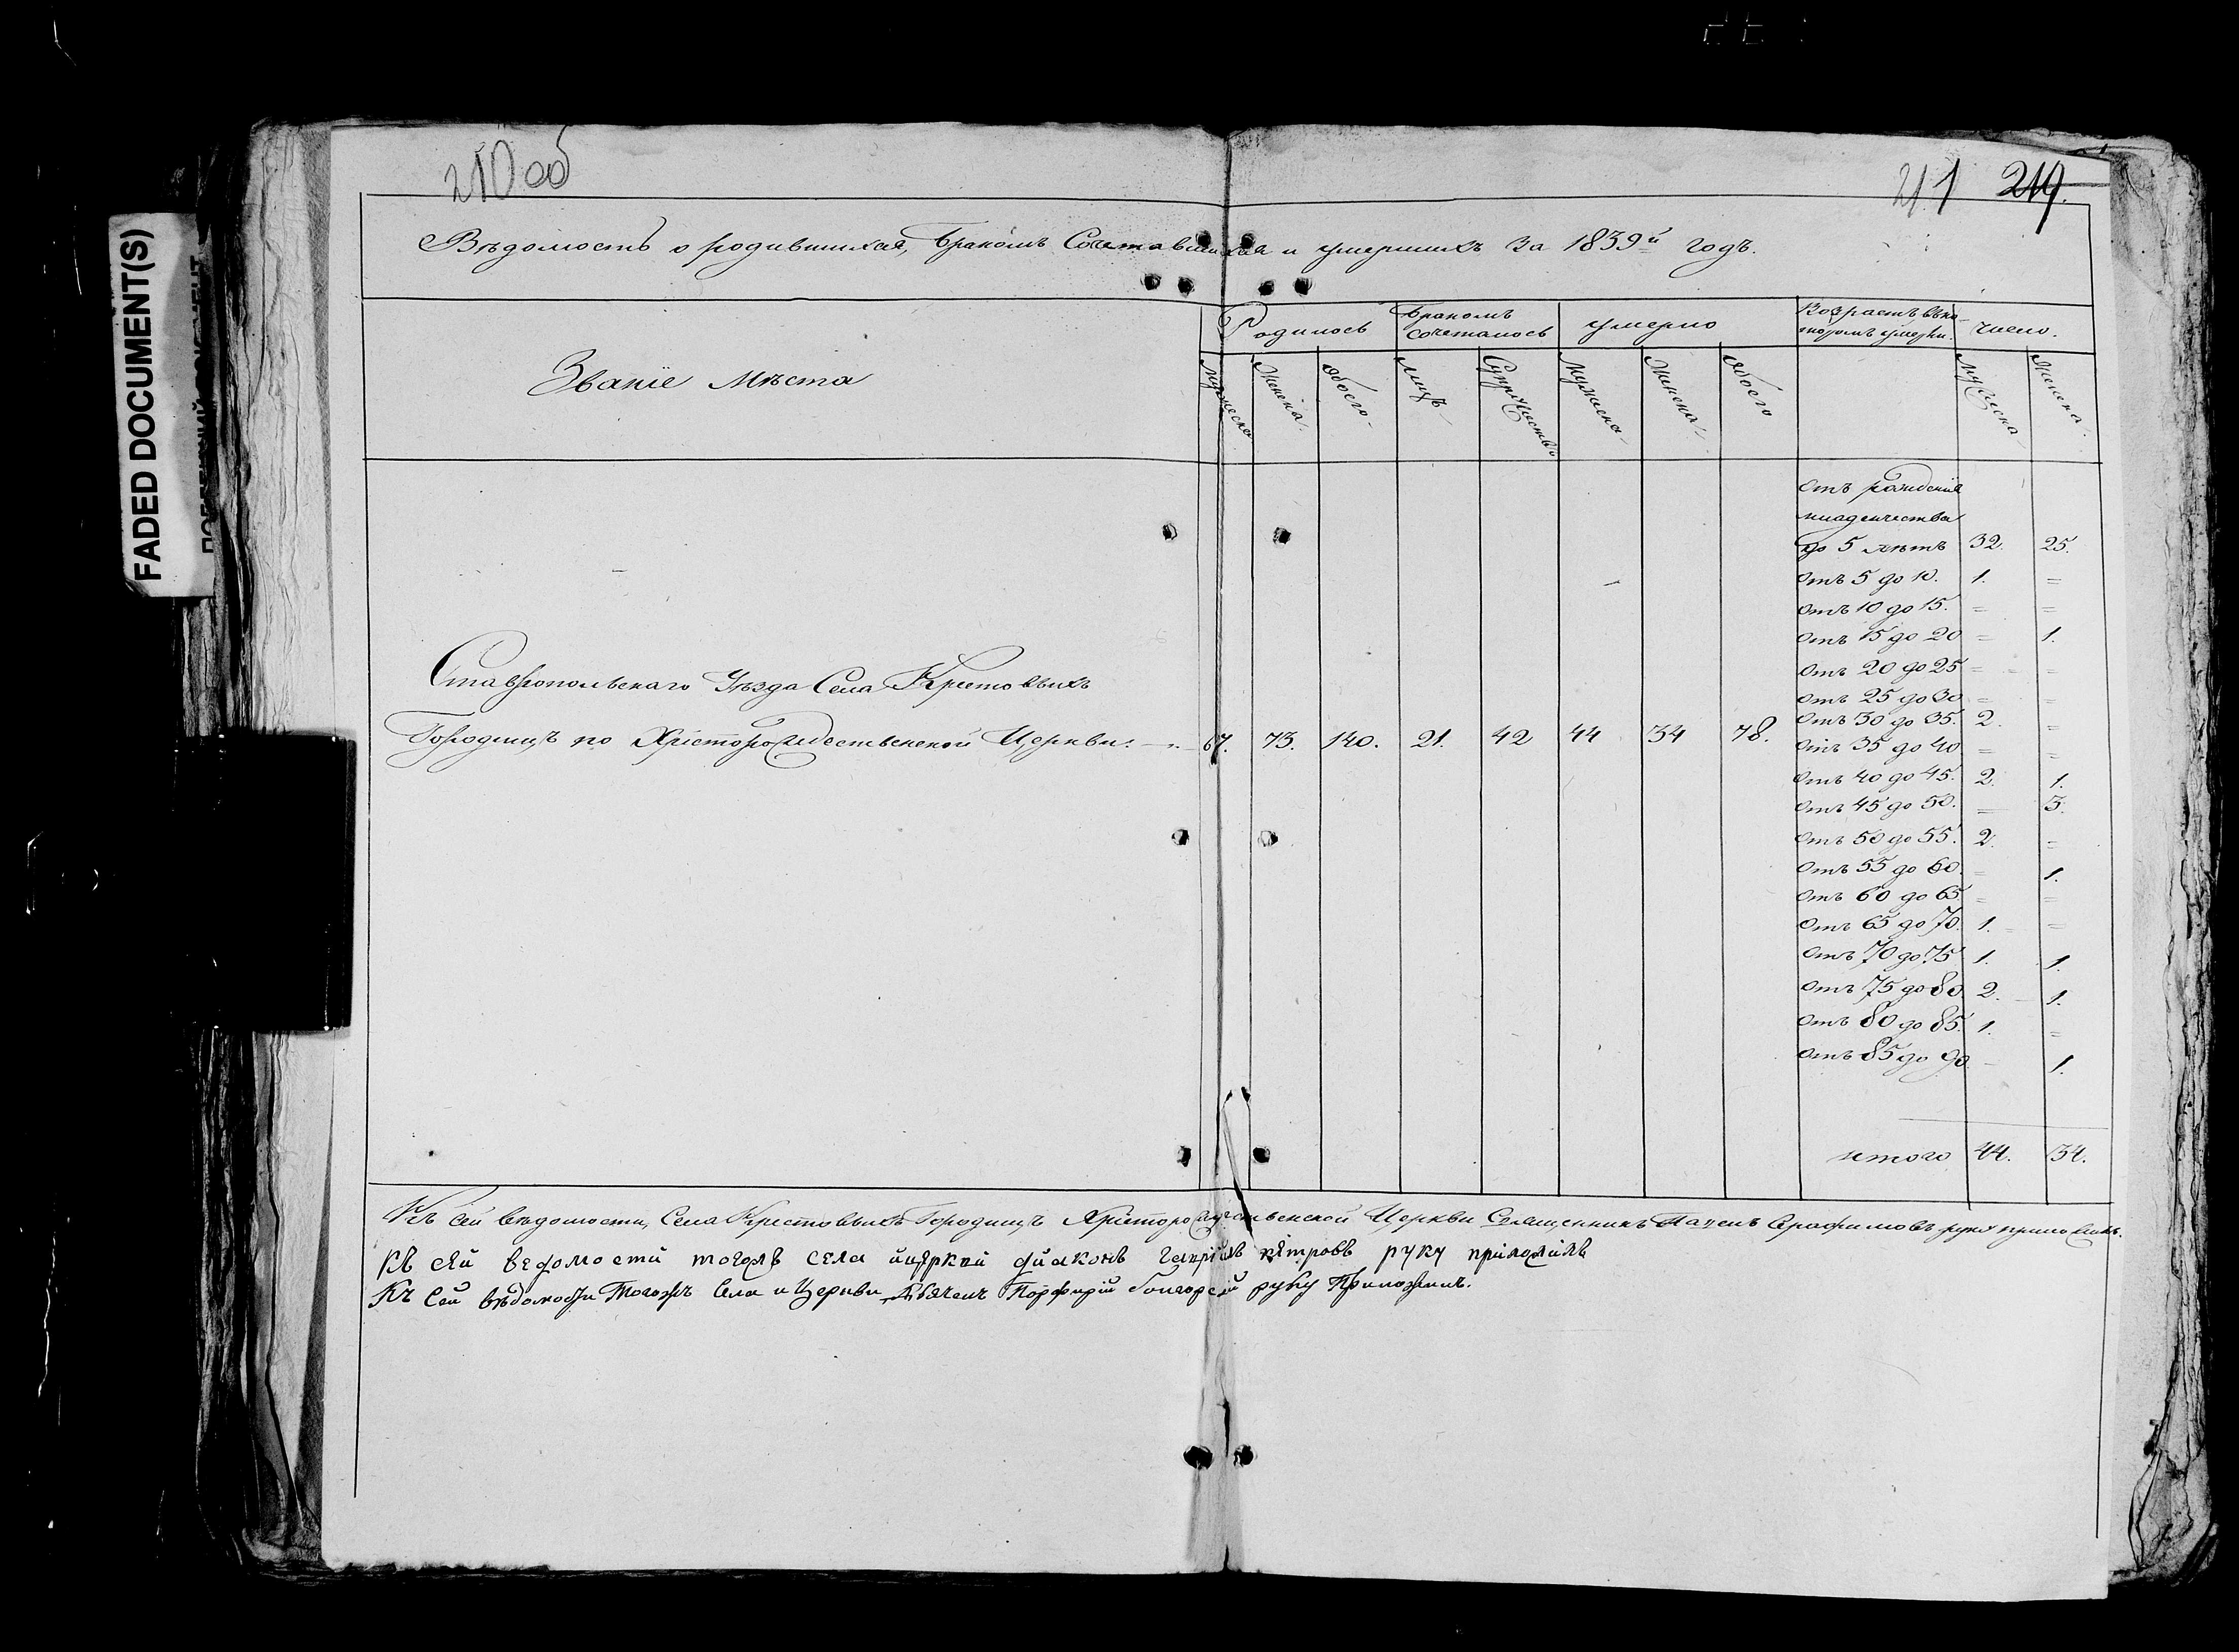 FADED DOCUMENT(S)
210 об
211 219.
Вѣдомость о родившихся, бракомъ Сочетавшихся и умершихъ за 1839й годъ.
Званіе Мѣста
Родилось
Бракомъ сочеталось
умерло
Возрастъ въ ко-
торомъ умерли.
число.
Мужеска
Женска.
обоего.
лицъ
Супружествъ
Мужеска.
Женска.
обоего
Мужеска.
Женска.
Ставропольскаго Уѣзда Села Крестовыхъ
Городищъ по Христорождественской Церкви. 67. 73. 140. 21. 42 44 34 78.
отъ рожденія
младенчества
до 5 лѣтъ 32. 25.
отъ 5 до 10. 1. =
отъ 10 до 15. = =
отъ 15 до 20 = 1.
отъ 20 до 25 = =
отъ 25 до 30 = =
отъ 30 до 35. 2. =
отъ 35 до 40 = =
отъ 40 до 45. 2. 1.
отъ 45 до 50. = 3.
отъ 50 до 55. 2. =
отъ 55 до 60. = 1.
отъ 60 до 65 = =
отъ 65 до 70. 1. =
отъ 70 до 75 1. 1.
отъ 75 до 80. 2. 1.
отъ 80 до 85. 1. =
отъ 85 до 90. 1.
итого 44. 34.
Къ сей вѣдомости, Села Крестовыхъ Городищъ Христорождественской Церкви Священникъ Павелъ Серафимовъ руку приложилъ.
къ сей ведомости тогожъ села ицеркви диаконъ гаврiилъ петровъ руку приложилъ
Къ Сей вѣдомости Тогожъ Села и Церкви Дьячекъ Порфирій руку Приложилъ.